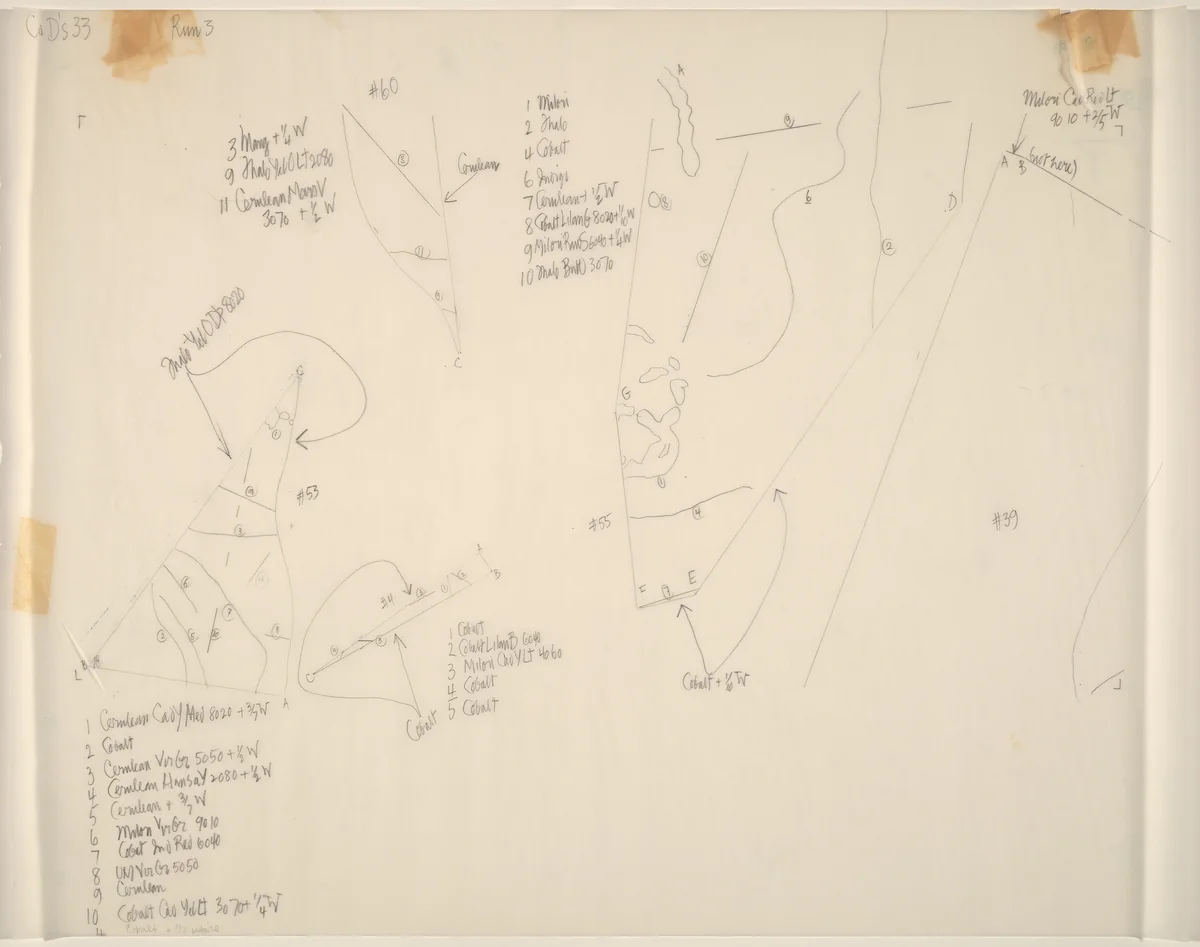 Co D's 33
Run 3
#60
3 Mang + 1/4 W
9 Thalo Yel O Lt 2080
11 Cerulean Mang V
3070 + 1/2 W
3
Cerulean
11
9
C
1 Milori
2 Thalo
4 Cobalt
6 Indigo
7 Cerulean + 1/2 W
8 Cobalt 8020 + 1/6 W
9 Milori 6040 + 1/4 W
10 Thalo 3070
A
9
8
6
10
2
D
G
1
4
#55
E
7
Cobalt + 1/6 W
Milori Cad Red Lt
90 10 + 2/5 W
A B (not here)
#39
Thalo Yel O Dp 8020
G
1
9
#53
3
6
7
2
5
8
B
A
1 Cerulean Cad Y Med 8020 + 3/5 W
2 Cobalt
3 Cerulean Vir Gr 5050 + 1/2 W
4 Cerulean Hansa Y 2080 + 1/2 W
5 Cerulean + 3/7 W
6 Milori Vir Gr 9010
7 Cobalt Ind Red 6040
8 UM Vir Gr 5050
9 Cerulean
10 Cobalt Cad Yel Lt 3070 + 1/4 W
#4
A
B
C
Cobalt
1 Cobalt
2 Cobalt 6040
3 Milori Cad Y Lt 4060
4 Cobalt
5 Cobalt